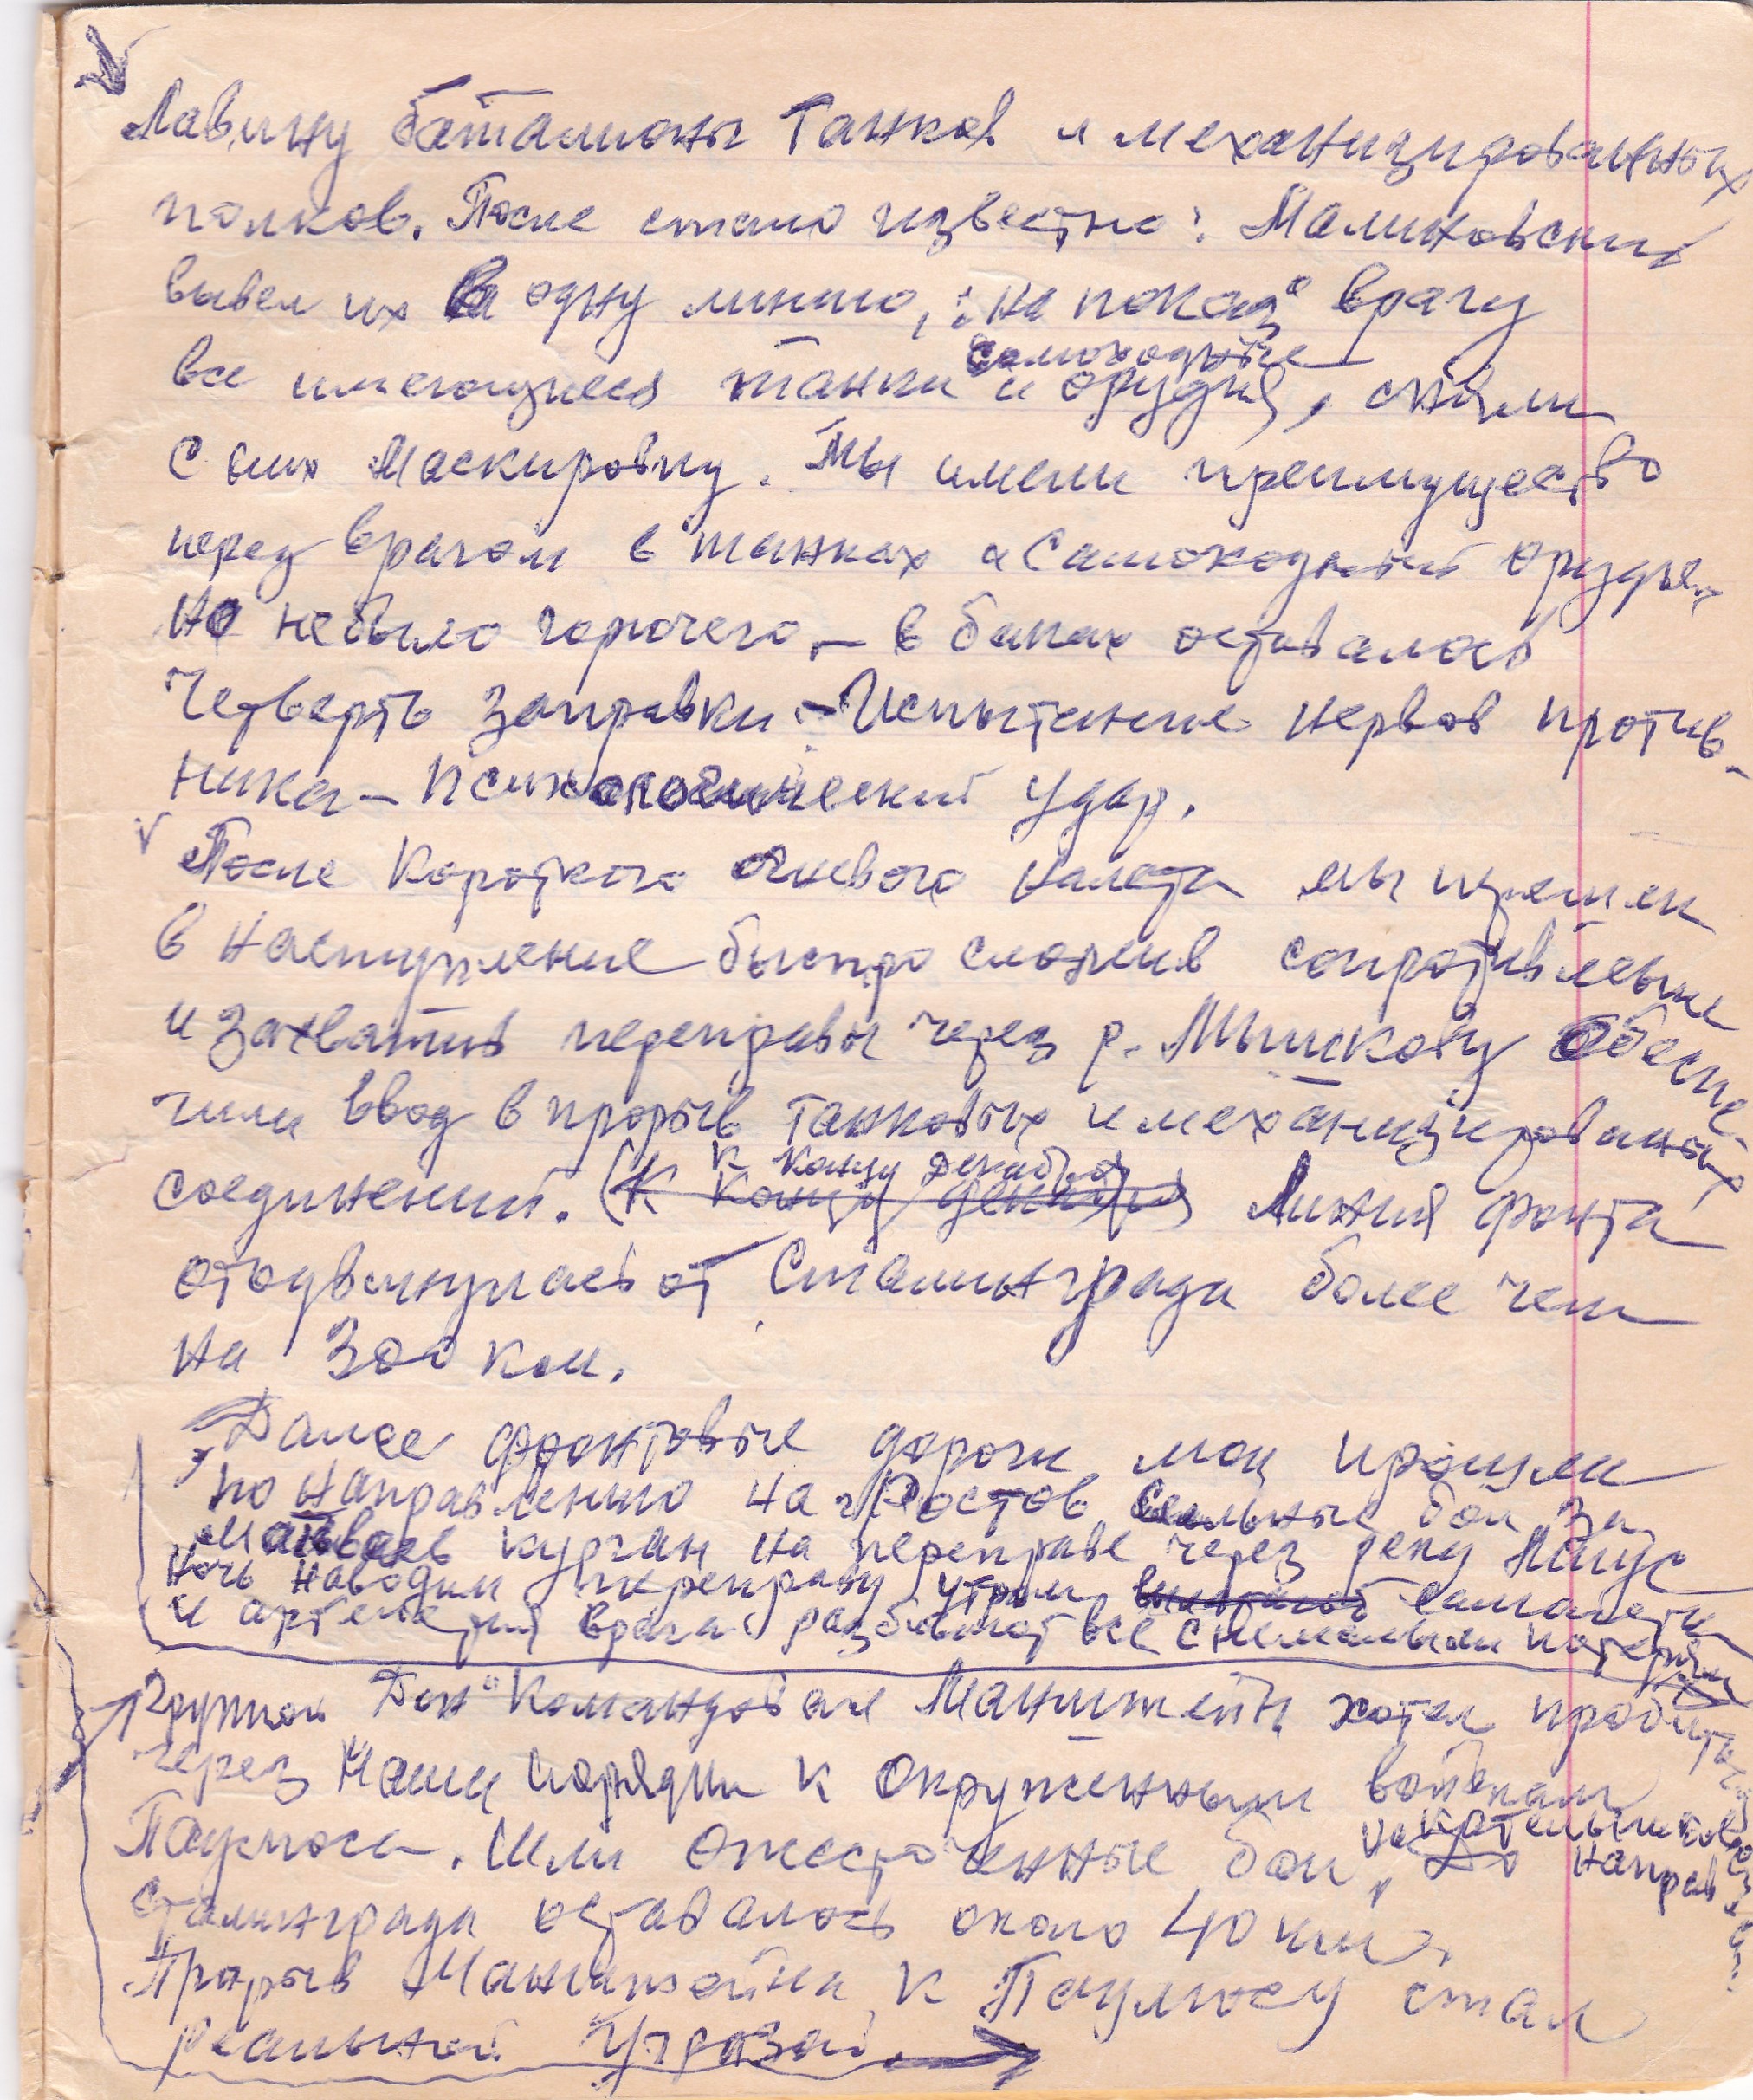 Лавину баталионы танков и механизированных
полков. После стало известно: Малиновский
вывел их в одну линию, "на показ" врагу
все имеющиеся танки и самоходные орудия, сняли
с них маскировку. Мы имели преимущество
перед врагом в танках и самоходный орудиях
Но небыло горючего, – в баках оставалось
четверть заправки – Испытание нервов против-
ника – психологический удар.
После короткого огневого налета мы перешли
в наступление быстро сломив сопротивление
и захватив переправы через р. Мышкову обеспе-
чили ввод в прорыв танковых и механизированных
соединений. (К концу декабря) к концу декабря Линия фронта
отодвинулась от Сталинграда более чем
на 300 км.
Далее фронтовые дороги мои прошли
по направлению на г Ростов, сильные бои за
Матвеев курган на переправе через реку Миус
Ночь наводим переправу, утром самолеты
и артелерия врага разбивают все с немалыми потерями
Группой Дон" Командовал Манштейн хотел пробиться
через наши порядки к окруженным войскам
Паулюса. Шли ожесточенные бои, на Котельников
направ
До
Сталинграда оставалось около 40 км.
Прорыв Манштейна к Паулюсу стал
реальной угрозой.